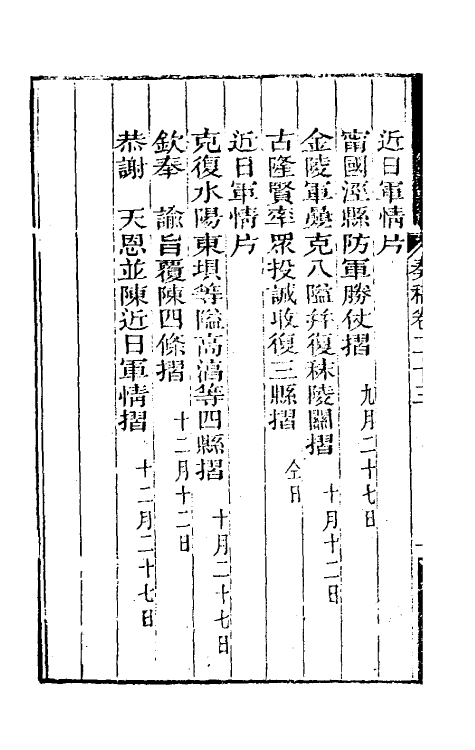 奏稿卷二十三
近日軍情片
甯國涇縣防軍勝仗摺 九月二十七日
金陵軍疊克八隘幷復秣陵關摺 十月十二日
古隆賢率眾投誠收復三縣摺 仝日
近日軍情片
克復水陽東埧等隘高淳等四縣摺 十月二十七日
欽奉 諭旨覆陳四條摺 十二月十二日
恭謝 天恩並陳近日軍情摺 十二月二十七日